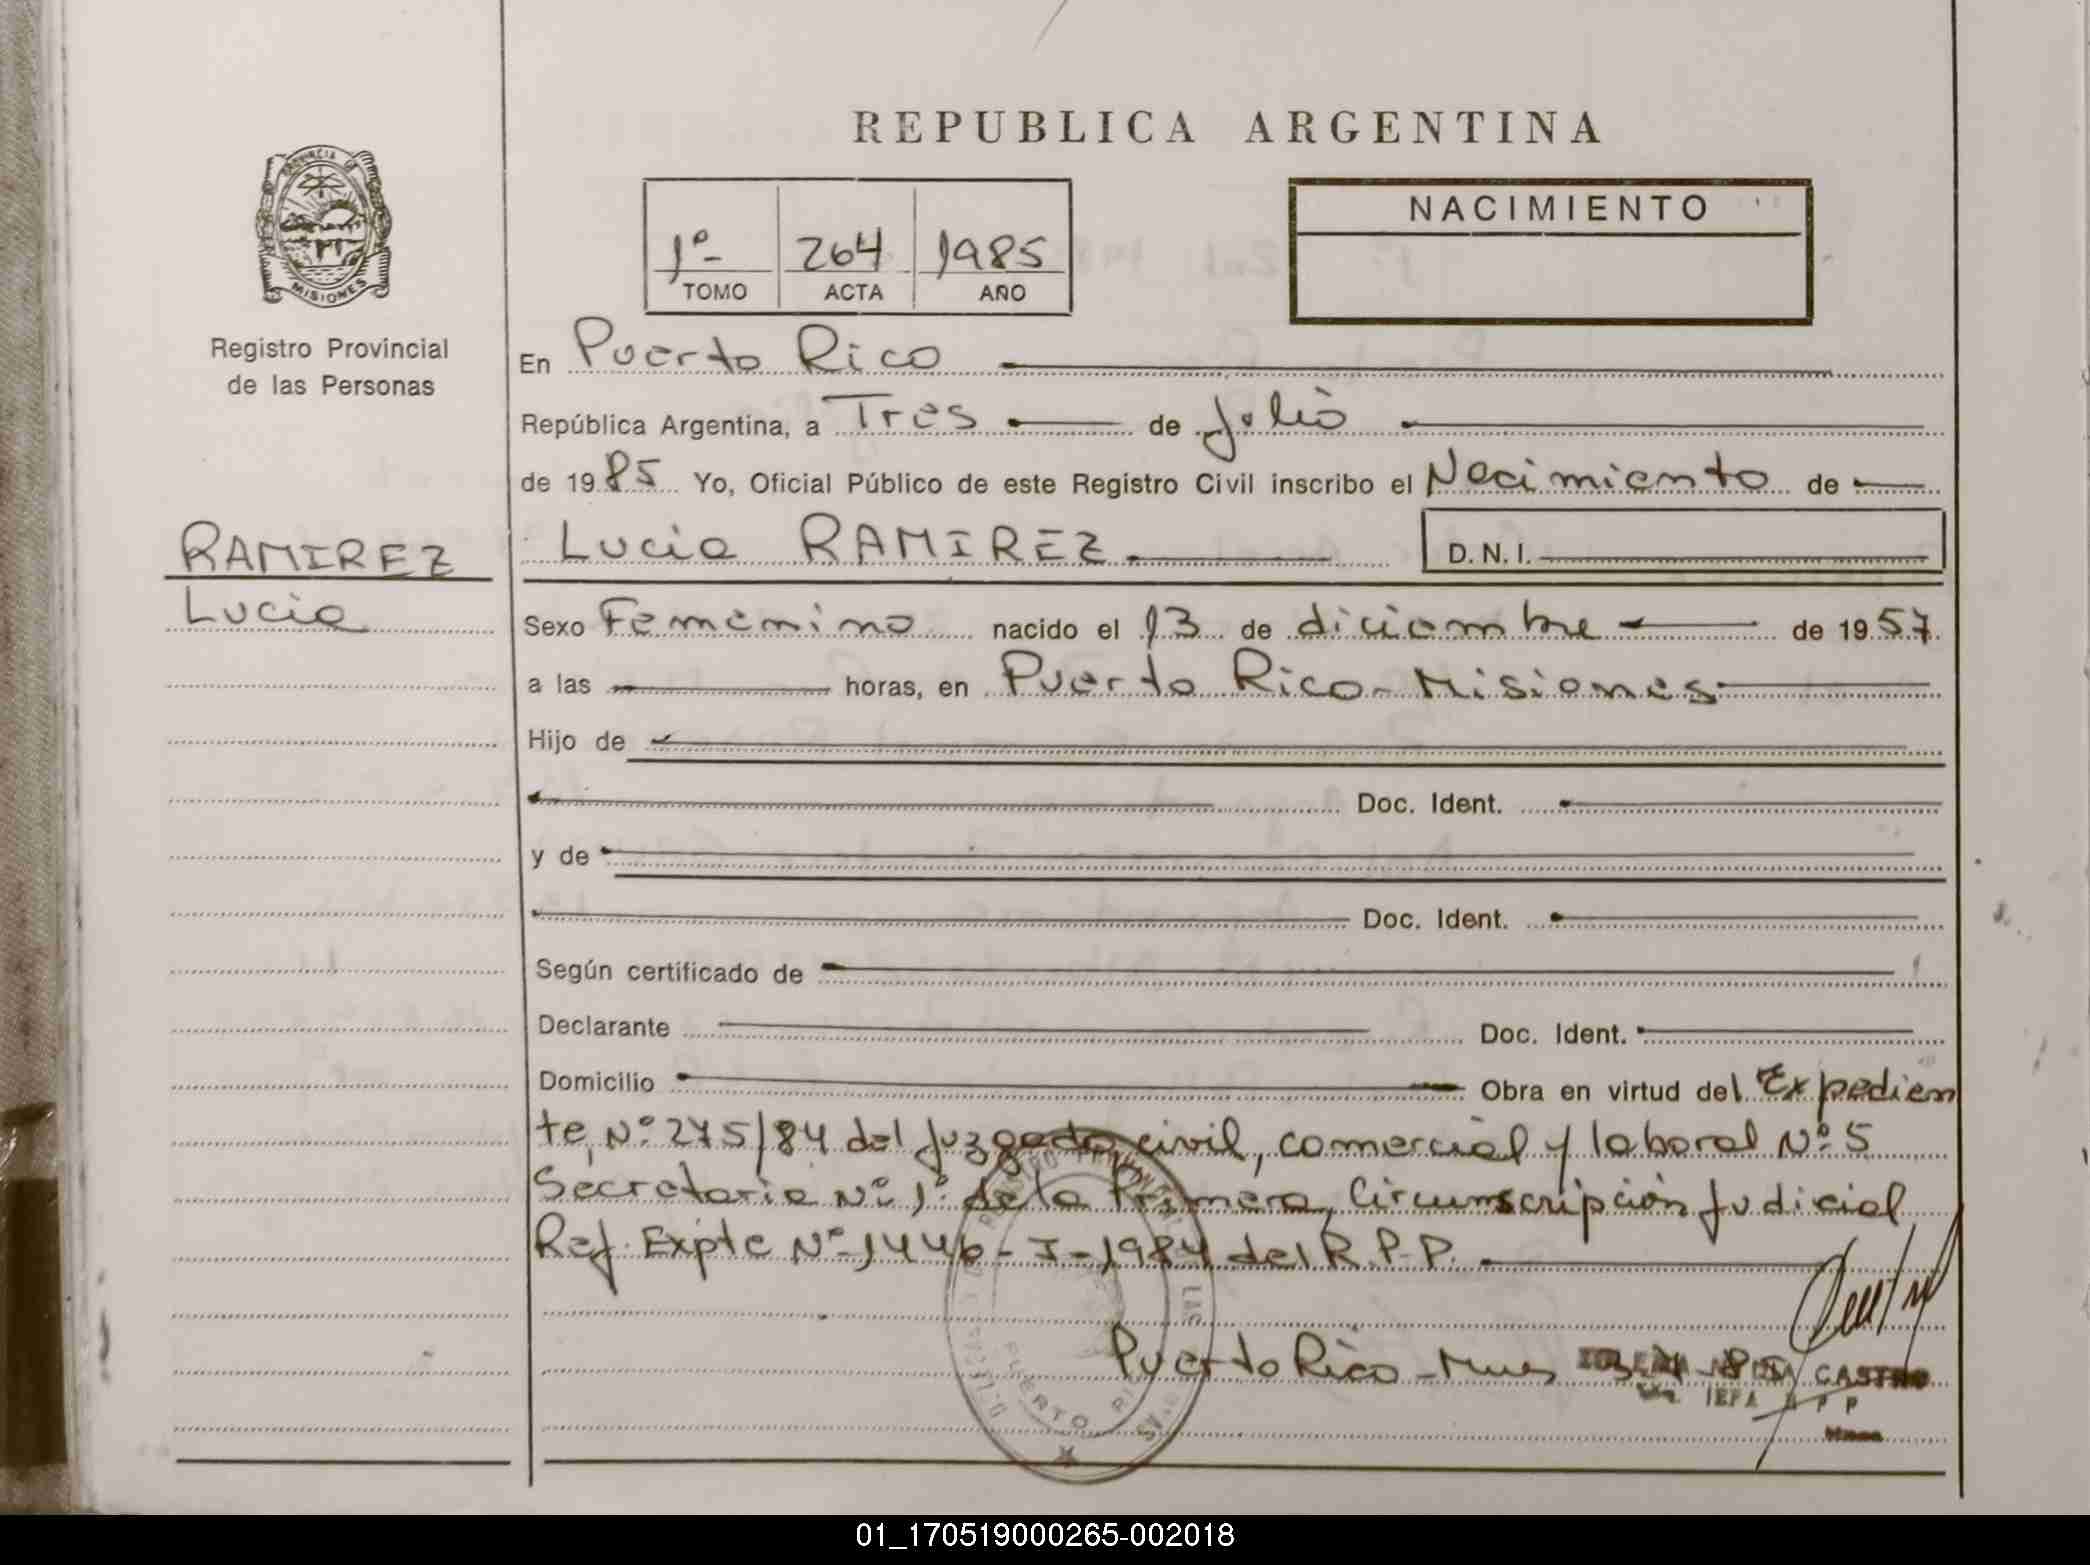 REPUBLICA ARGENTINA
PROVINCIA DE
MISIONES
Registro Provincial
de las Personas
1º 264 1985
TOMO ACTA AÑO
NACIMIENTO
En Puerto Rico
República Argentina, a Tres de Julio
de 1985 Yo, Oficial Público de este Registro Civil inscribo el Nacimiento de
RAMIREZ
Lucia
Lucia RAMIREZ. D.N.I.
Sexo Femenino nacido el 13 de diciembre de 1957.
a las horas, en Puerto Rico - Misiones
Hijo de
Doc. Ident.
y de
Doc. Ident.
Según certificado de
Declarante Doc. Ident.
Domicilio Obra en virtud del Expedien
te, Nº 245/84 del Juzgado civil, comercial y laboral Nº 5
Secretaria Nº 1º de la Primera, Circunscripción Judicial
Ref. Expte Nº 1446-I-1984 del R.P.P.
Puerto Rico - Mnes
CASTRO
PUERTO RICO
01_170519000265-002018